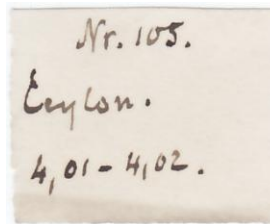 Nr. 105.
Ceylon.
4,01-4,02.